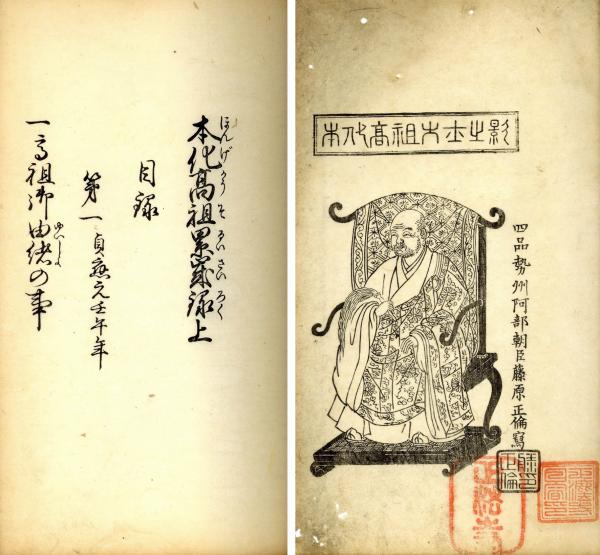 本化高祖大士之影
四品勢州阿部朝臣藤原正倫寫
本化高祖累歳録上
ほんげかうそるいさいろく
目録
第一貞應元壬午年
一高祖御由緒の事
ゆいしよ